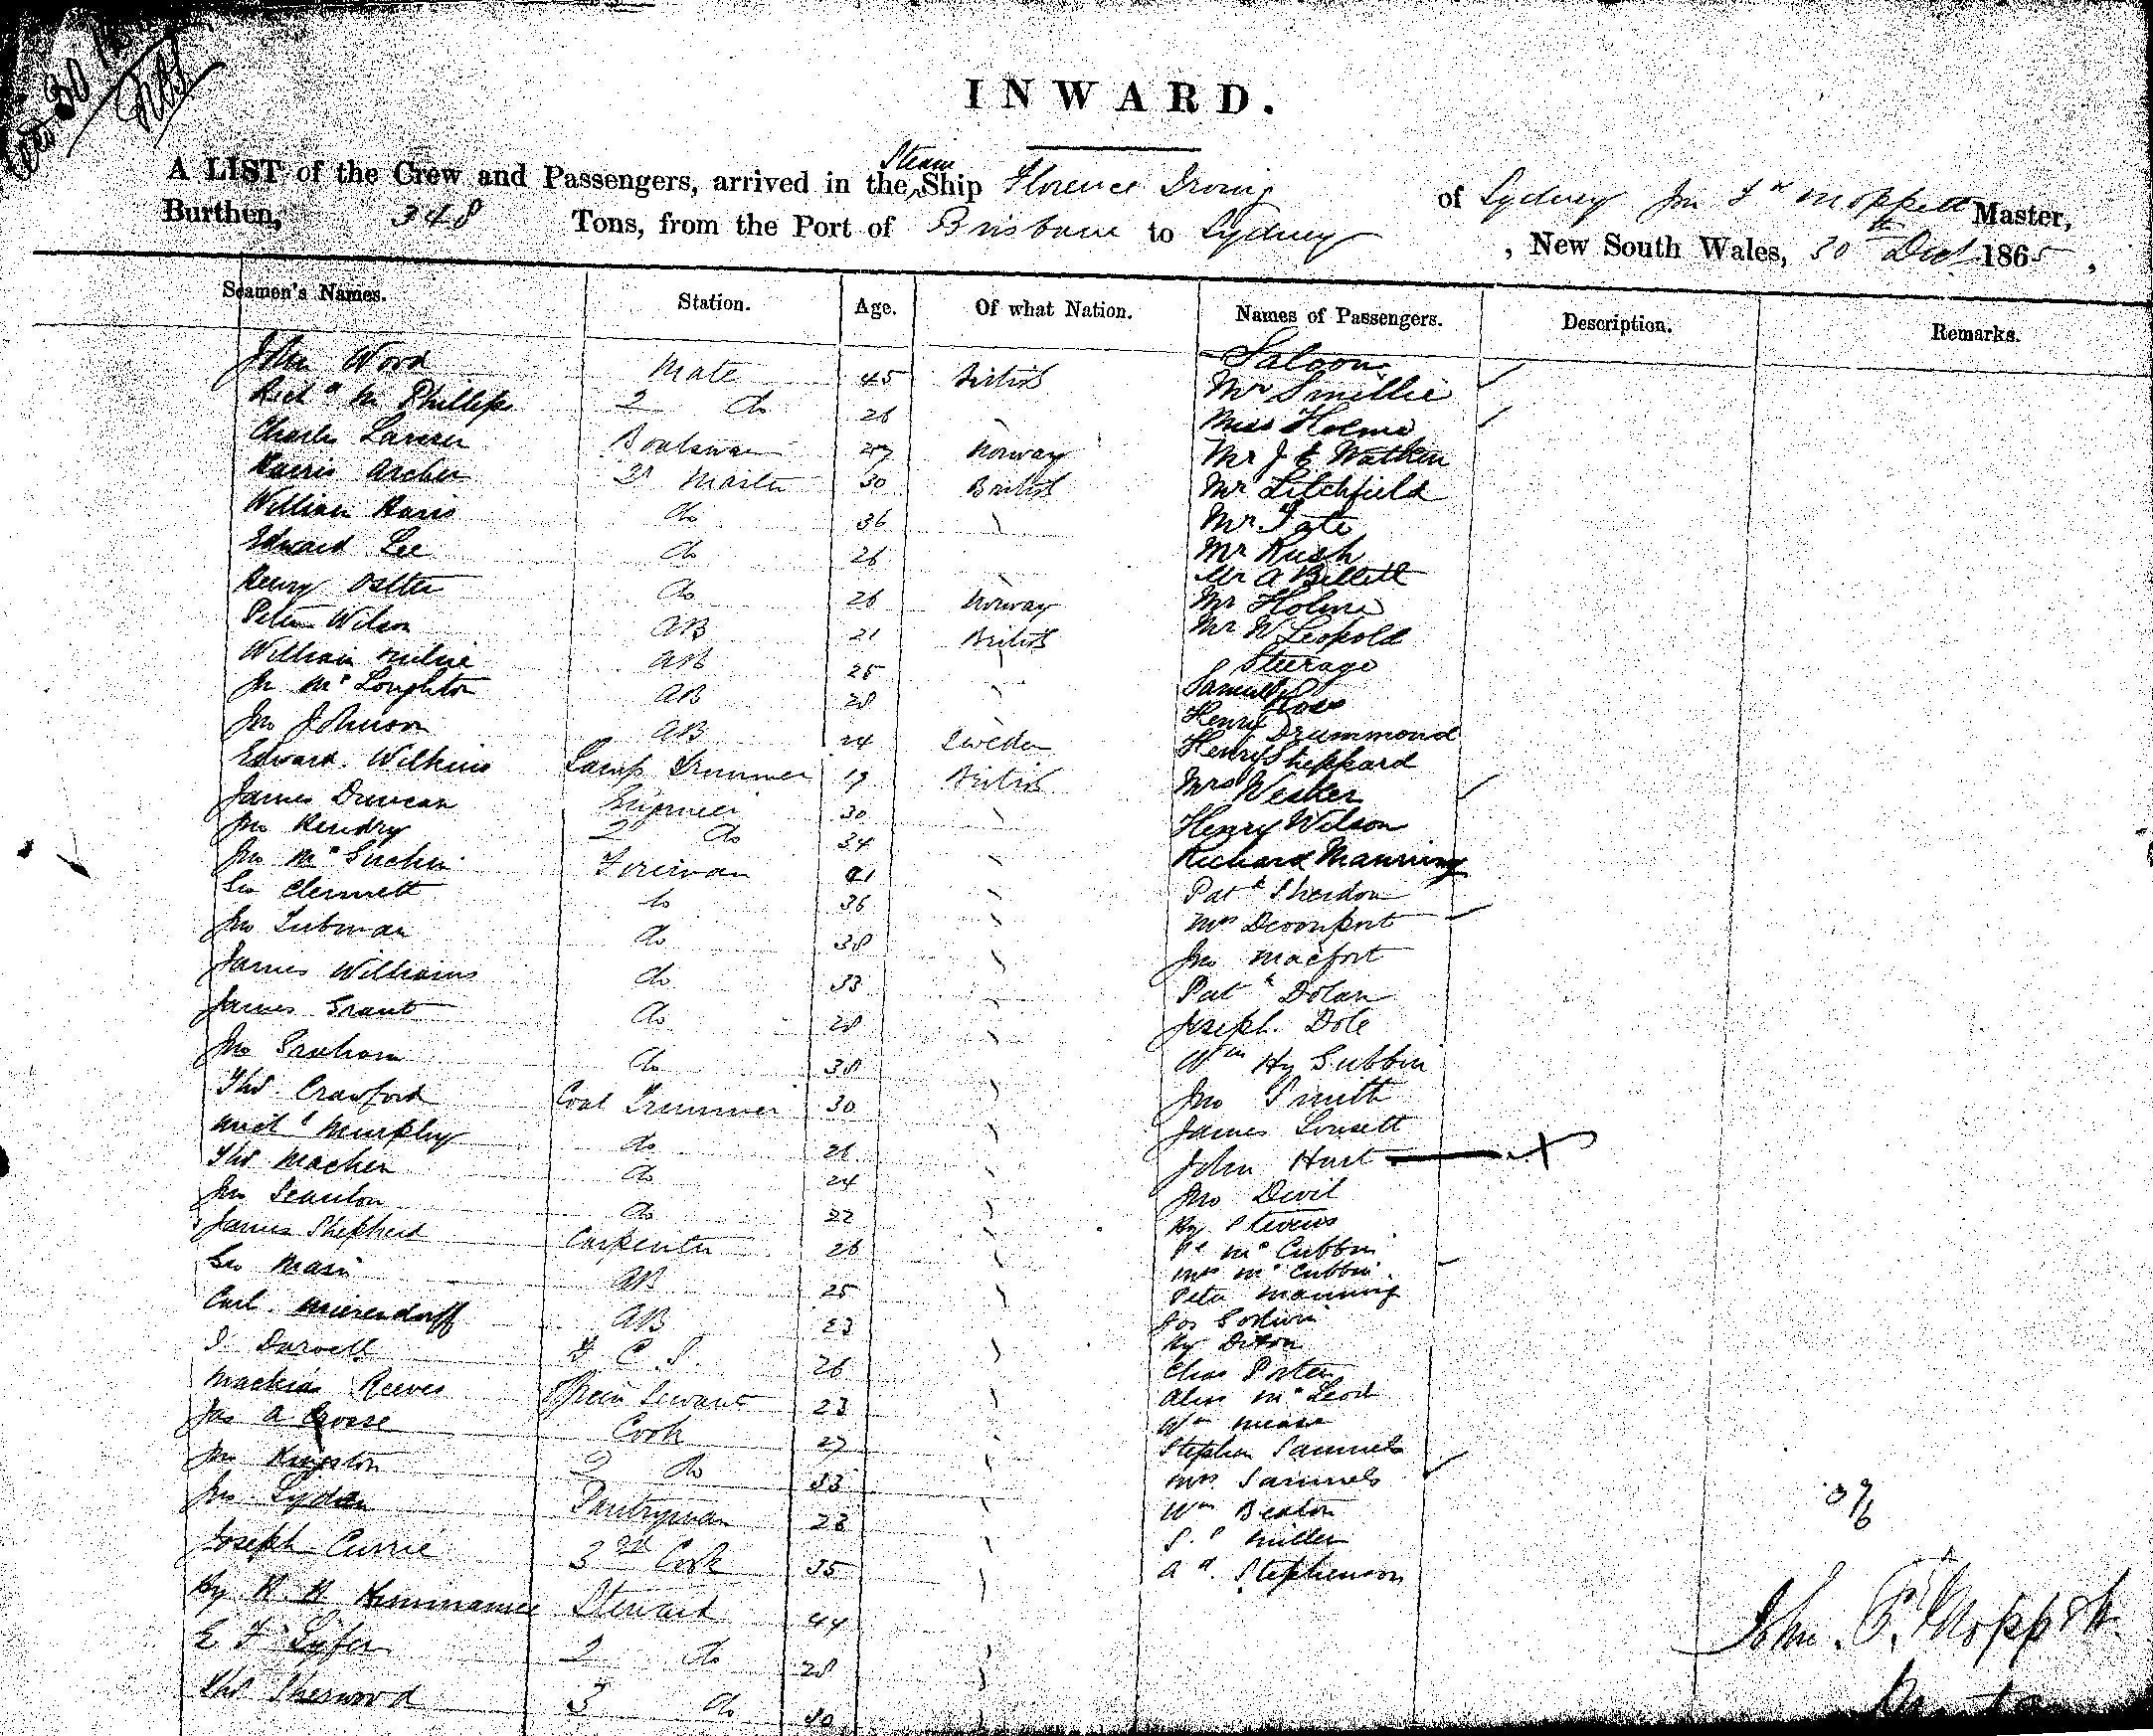 INWARD.
A LIST of the Crew and Passengers, arrived in the Steam Ship Florence Irving of Sydney Jno Fk Moppett Master,
Burthen, 348 Tons, from the Port of Brisbane to Sydney, New South Wales, 30th Dec 1865,
Seamen's Names. Station. Age. Of what Nation. Names of Passengers. Description. Remarks.
Saloon
John Wood Mate 45 British Mr Smellie
Richd Phillips 2 do 26 Miss Holme
Charles Boatswain 27 Norway Mr J Watkin
Harris Archer 30 British Mr Litchfield
William Haris do 36 Mr Tate
Edward Lee do 26 Mr Rush
Mr A Billett
Henry do 26 Norway Mr Holme
Peter Wilson AB 21 British Mr W Leopold
Steerage
William Milne AB 25 Samuel Ross
Jn McLoughton AB 28 Henry Drummond
Jno Johnson AB 24 Sweden Henry Sheppard
Edward Wilkins Lamp Trimmer 19 British Mrs Wesker
James Duncan Engineer 30 Henry Wilson
Jno Hendry 2 do 34 Richard Manning
Jno Fireman 41 Patk Sheridon
Geo Clennett do 36 Mrs Devonport
Jno Tubman do 38 Jno Macfort
James Williams do 33 Patk Dolan
James Grant do 28 Joseph Dole
Jno Graham do 38 Wm Hy Gubbin
Thos Crawford Coal Trimmer 30 Jno Smith
Michl Murphy do 26 James
Thos Machen do 24 John Hart
Jno Scanlon do 22 Jno Devil
James Shepherd Carpenter 26 Hy Stevens
McCubbin
Geo Main AB 25 Mrs McCubbin
Peter Manning
Carl Mierendorff AB 23 Jos
Hy Dixon
Darvell F C S 26 Chas Porter
Reeves Servant 23 Alex McLeod
Wm
Jas A Crosse Cook 27 Stephen Sammels
Jno Kingston 2 do 33 Mrs Sammels
Jno Lydan Pantryman 23 Wm Beaton
Miller
Joseph Currie 3rd Cook 35 Stephenson
Hy Steward 44
E F 2 do 28
Thos Sherwood 3 do 30
John F Moppett